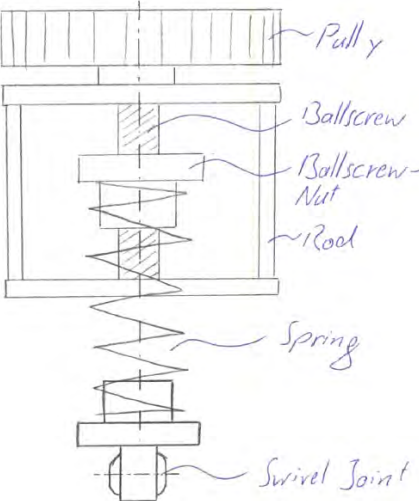 Pully
Ballscrew
Ballscrew-
Nut
Rod
Spring
Swivel Joint